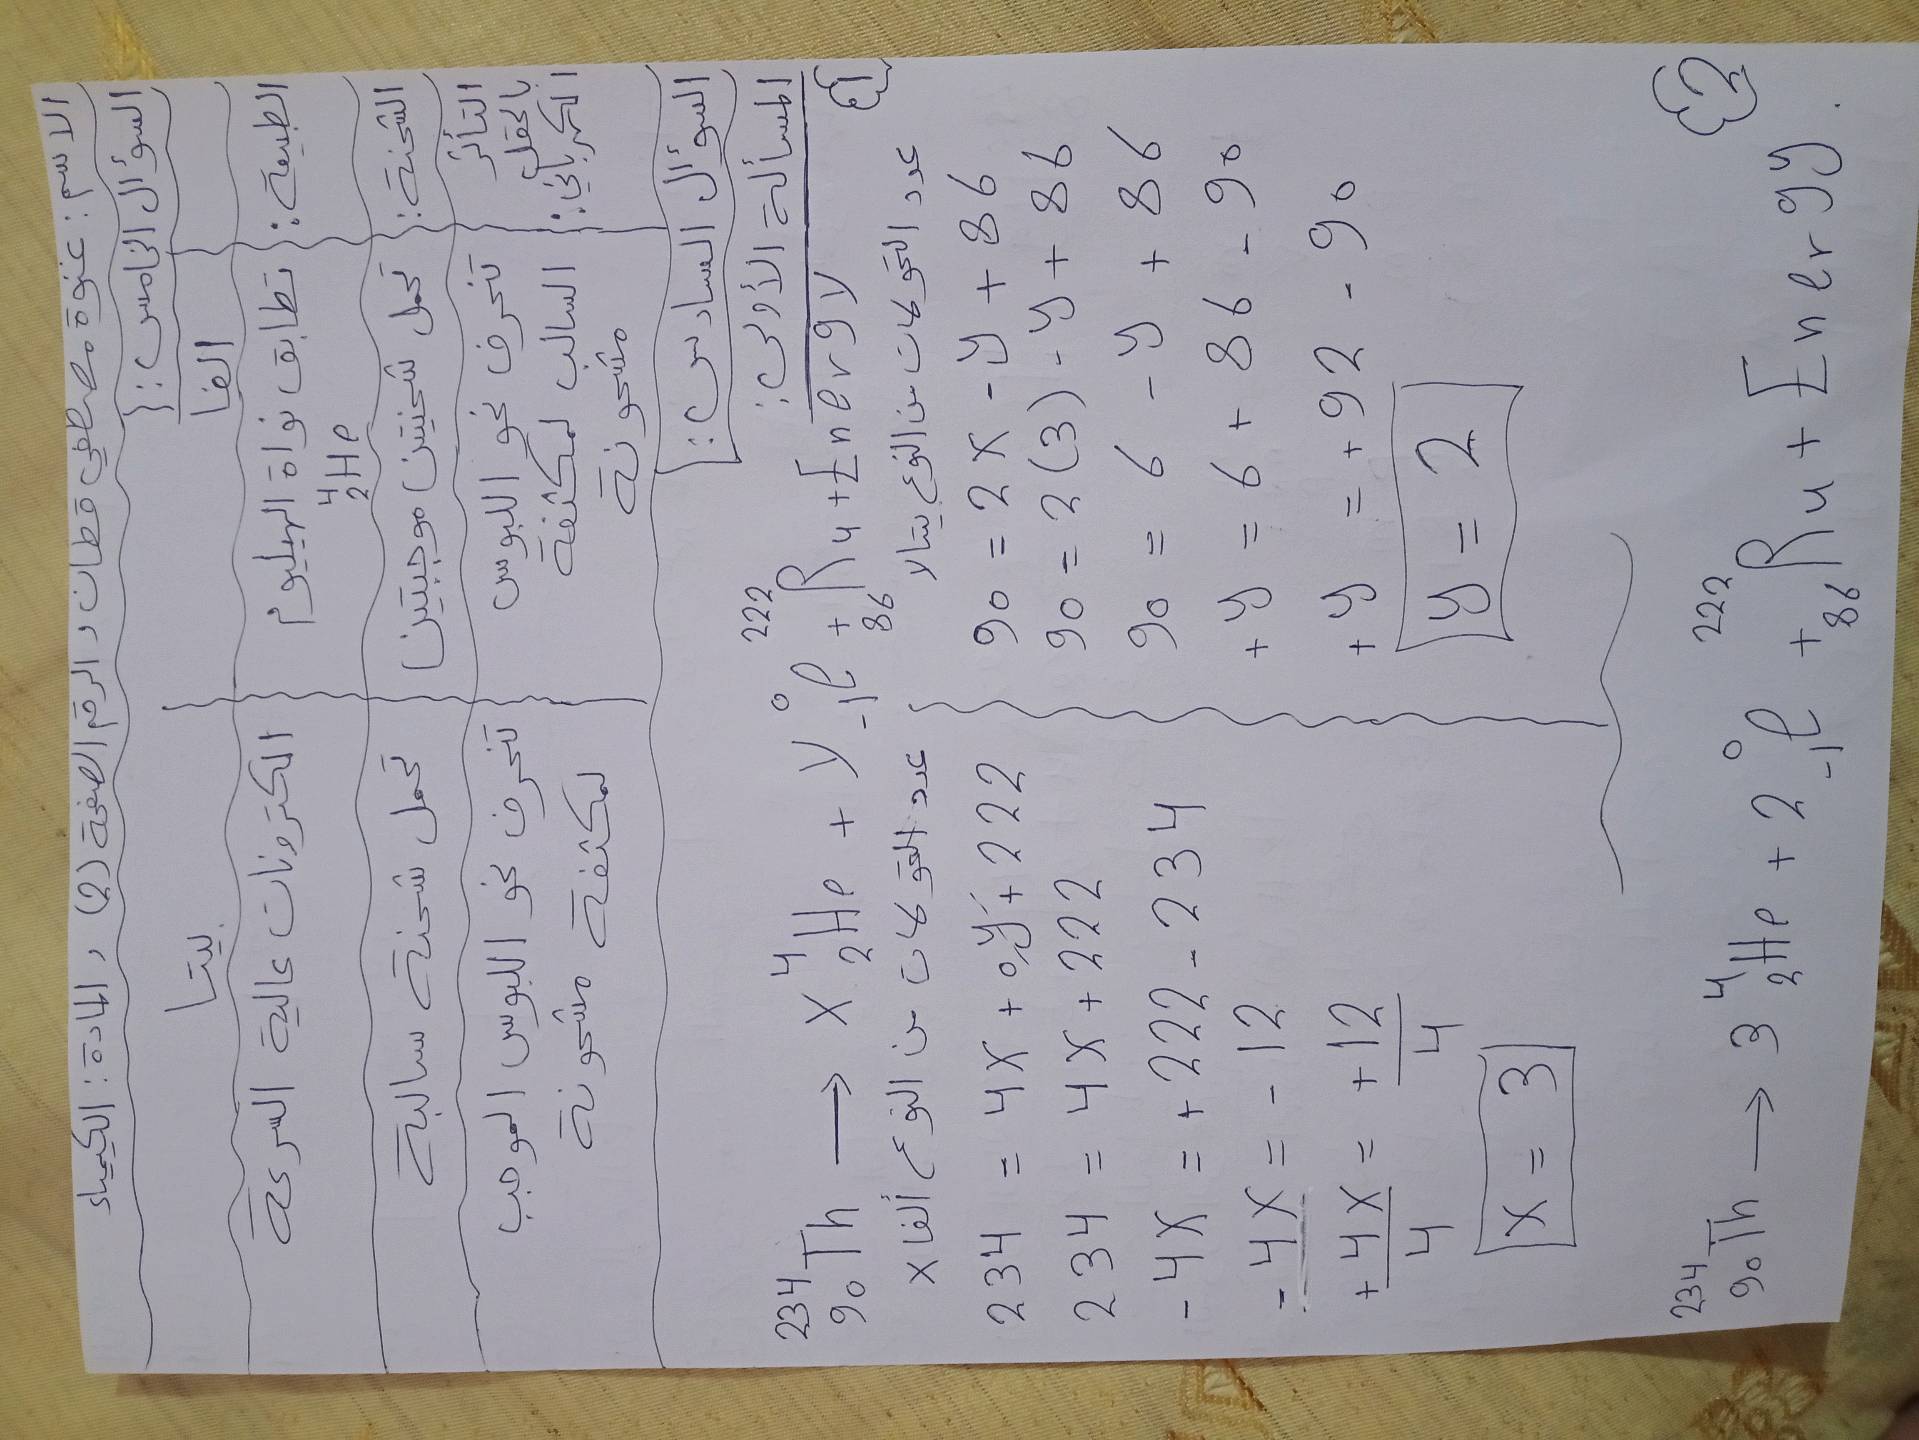 الاسم: غنوة مصطفى قطان، الرقم الصفحة (2)، المادة: الكيمياء
السؤال الخامس:
الفا
بيتا
الطبيعة: تطابق نواة الهيليوم ⁴₂He
الكترونات عالية السرعة
الشحنة: تحمل شحنيتين موجبيتين
تحمل شحنة سالبة
التأثر بالحقل الكهربائي: تنحرف نحو اللبوس السالب لمكثفة مشحونة
تنحرف نحو اللبوس الموجب لمكثفة مشحونة
السؤال السادس:
المسألة الأولى:
1
²³⁴₉₀Th → x ⁴₂He + y ⁰₋₁e + ²²²₈₆Ru + Energy
عدد التحولات من النوع ألفا x
234 = 4x + 0y + 222
234 = 4x + 222
-4x = +222 - 234
-4x = -12
+4x/4 = +12/4
x = 3
عدد التحولات من النوع بيتا y
90 = 2x - y + 86
90 = 2(3) - y + 86
90 = 6 - y + 86
+y = 6 + 86 - 90
+y = +92 - 90
y = 2
2
²³⁴₉₀Th → 3 ⁴₂He + 2 ⁰₋₁e + ²²²₈₆Ru + Energy.